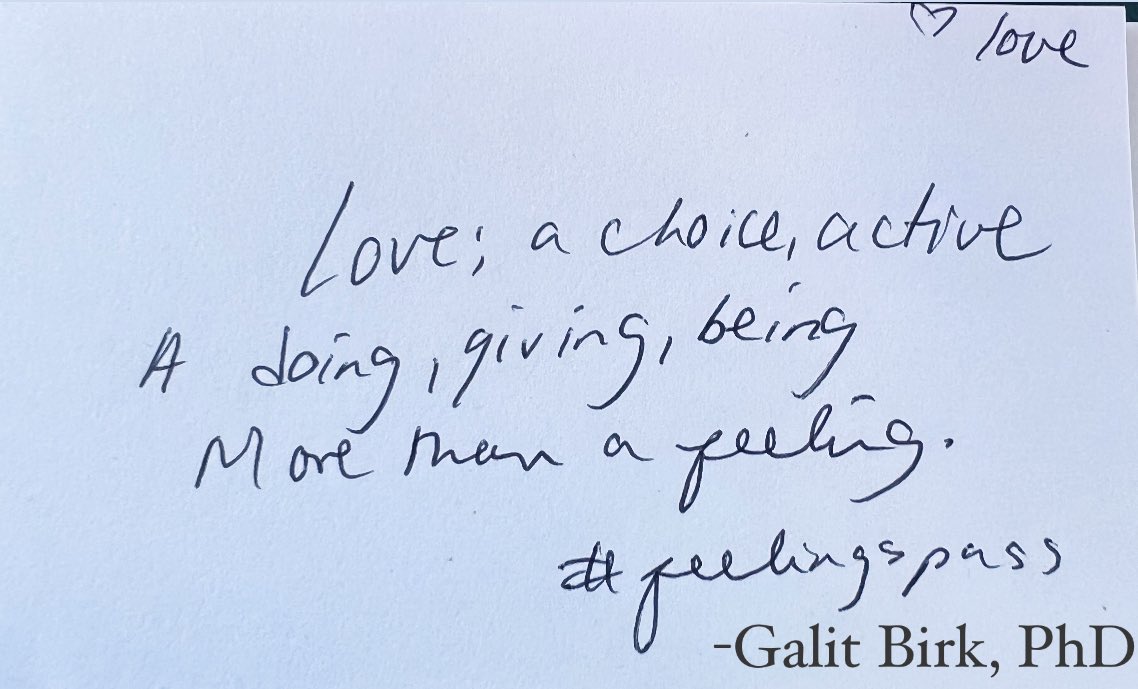 ♡ love
Love; a choice, active
A doing, giving, being
More than a feeling.
#feelingspass
-Galit Birk, PhD